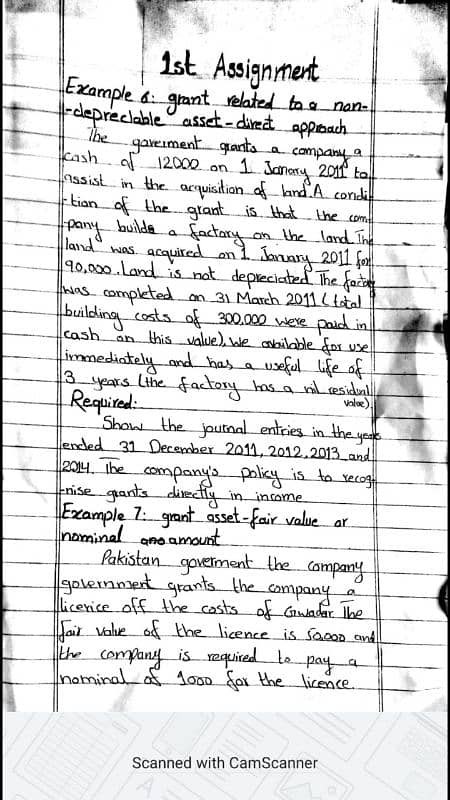 1st Assignment
Example 6: grant related to a non-
-depreclable asset-direct approach
The goverment grants a company a
cash of 12000 on 1 Janary 2011 to
assist in the acquisition of land. A condi
-tion of the grant is that the com
-pany builds a factory on the land. The
land was acquired on 1 January 2011 for
90,000. Land is not depreciated. The factory
was completed on 31 March 2011 (total
building costs of 300,000 were paid in
cash on this value), we available for use
immediately and has a useful life of
3 years (the factory has a nil residual
value).
Required:
Show the journal entries in the years
ended 31 December 2011, 2012, 2013 and
2014. The company's policy is to recog-
-nise grants directly in income
Example 7: grant asset-fair value or
nominal amount
Pakistan goverment the company
government grants the company a
licence off the costs of Gwadar. The
fair value of the licence is 50000 and
the company is required to pay a
nominal of 1000 for the licence.
Scanned with CamScanner